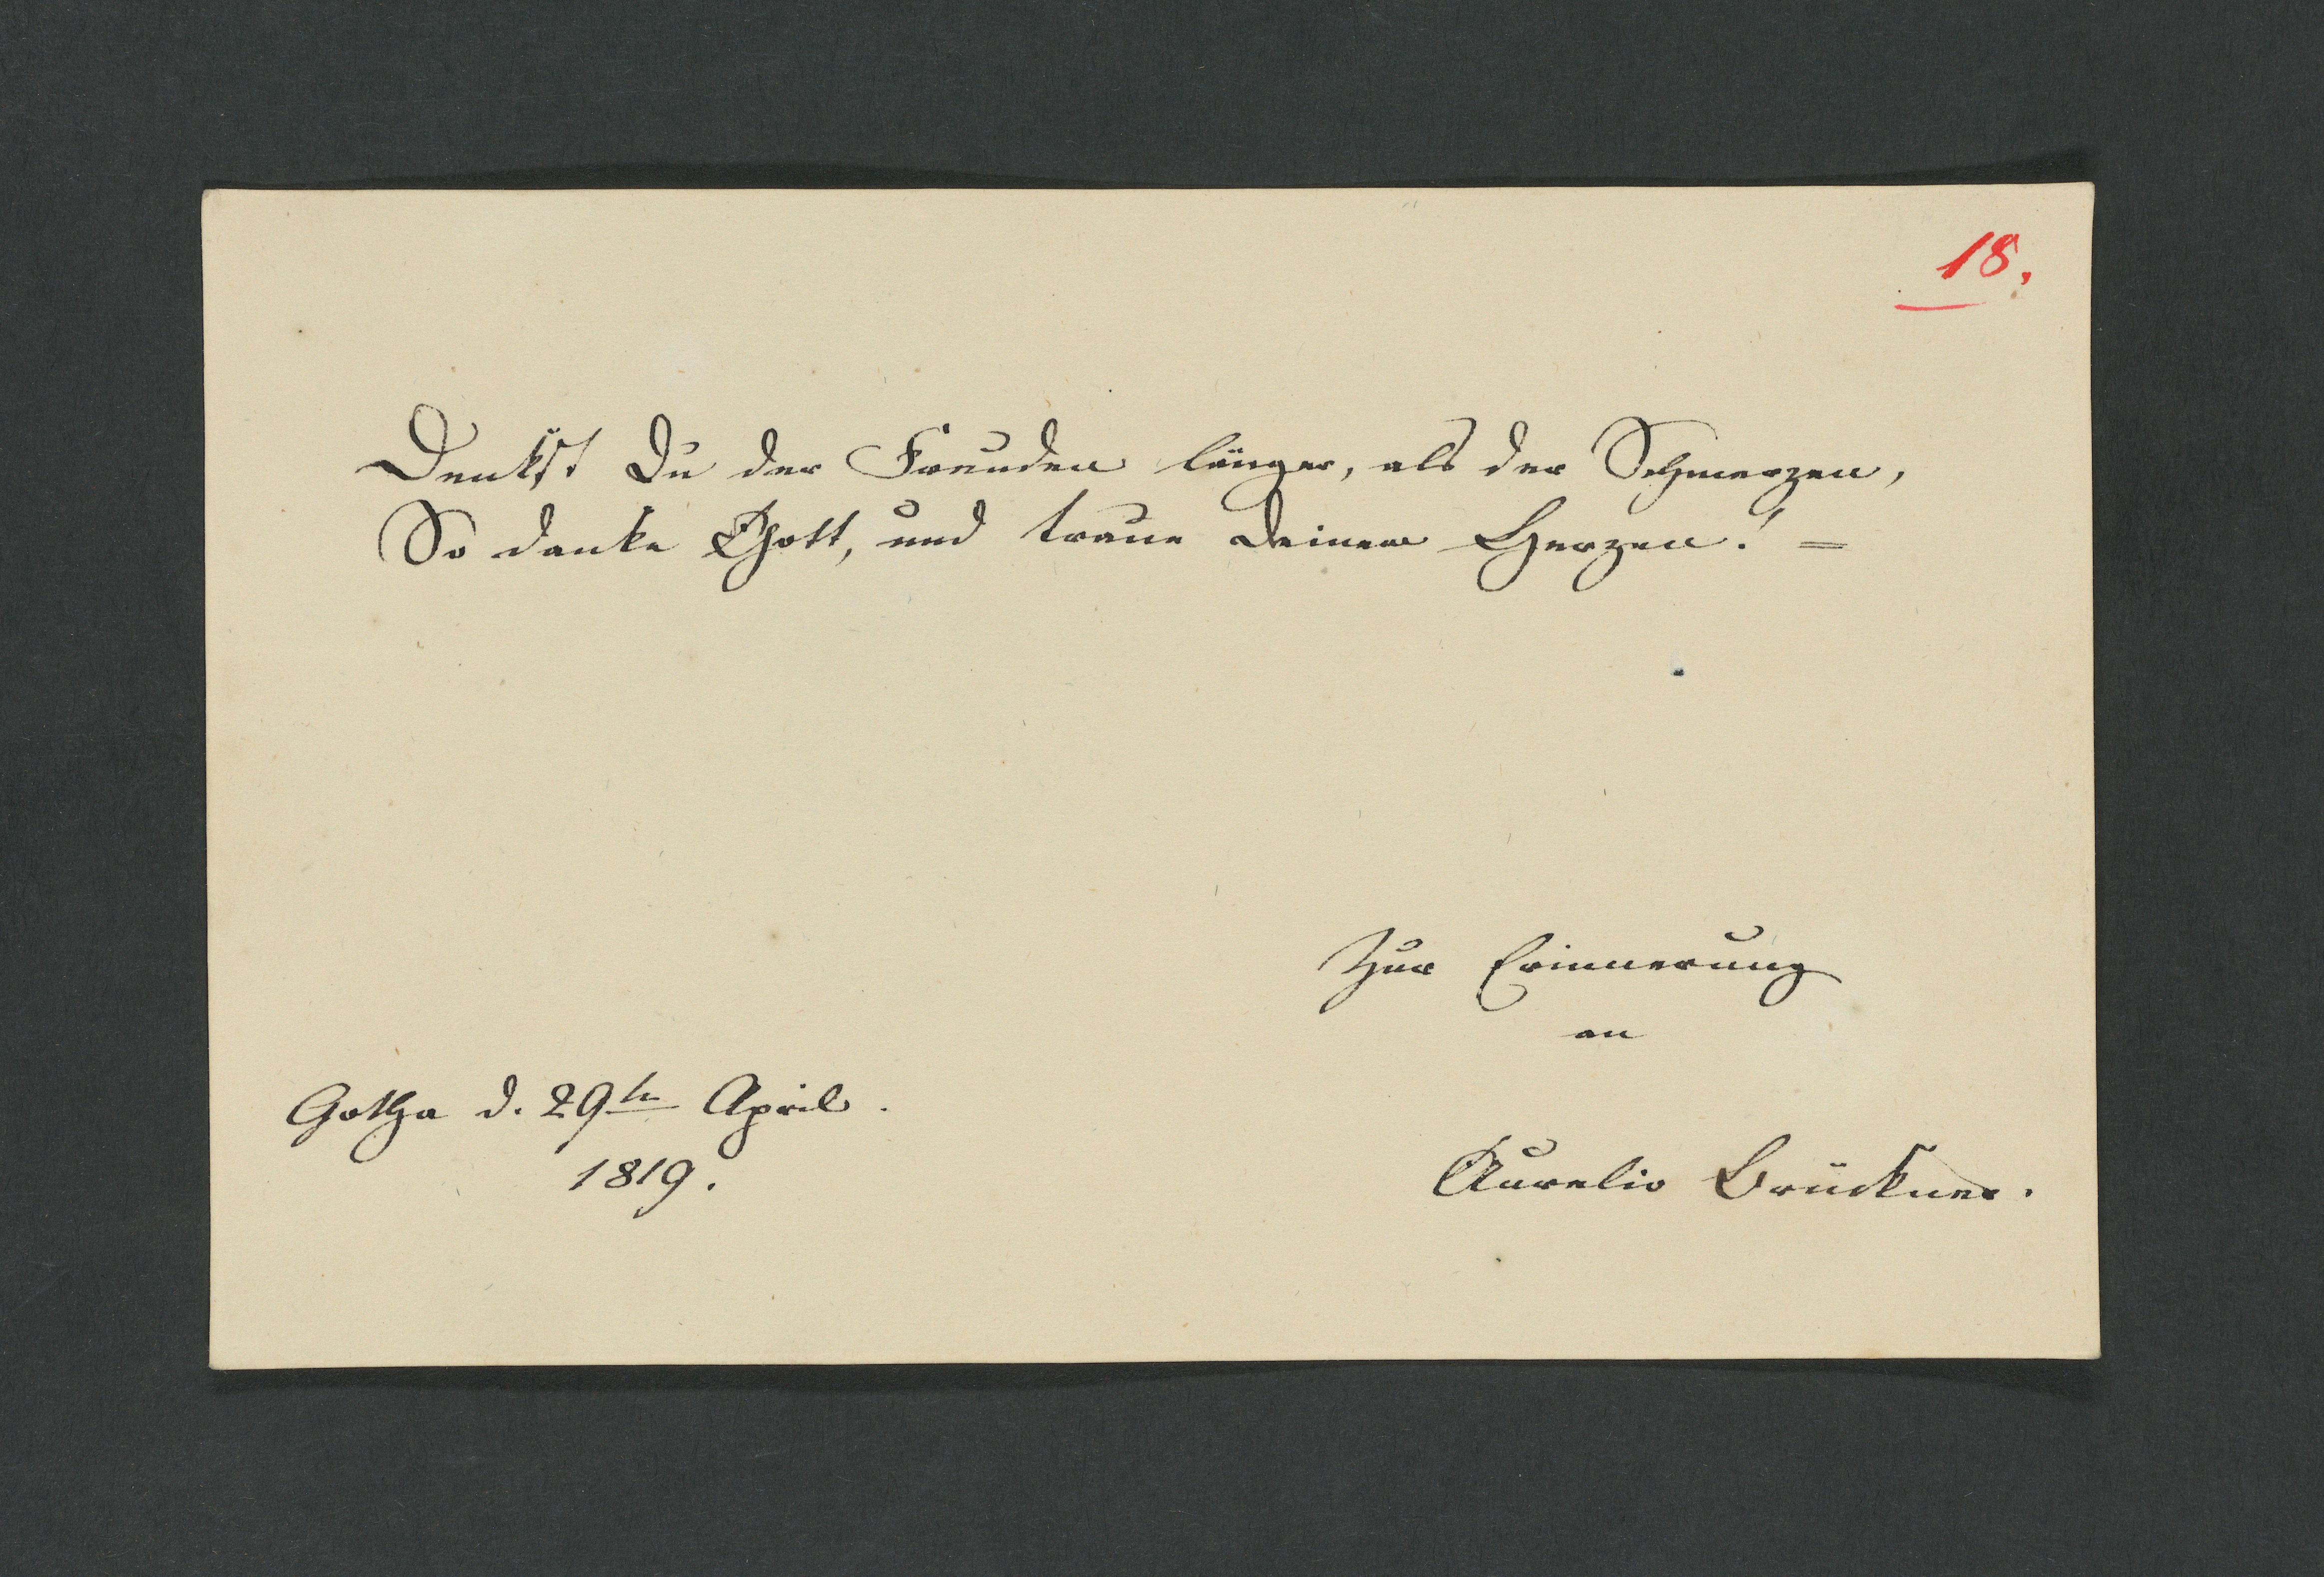 18.
Denkst Du der Freuden länger, als der Schmerzen,
So danke Gott, und traue Deinem Herzen! =
Zur Erinnerung
an
Gotha d. 29ten April.
1819.
Aurelio Brückner.